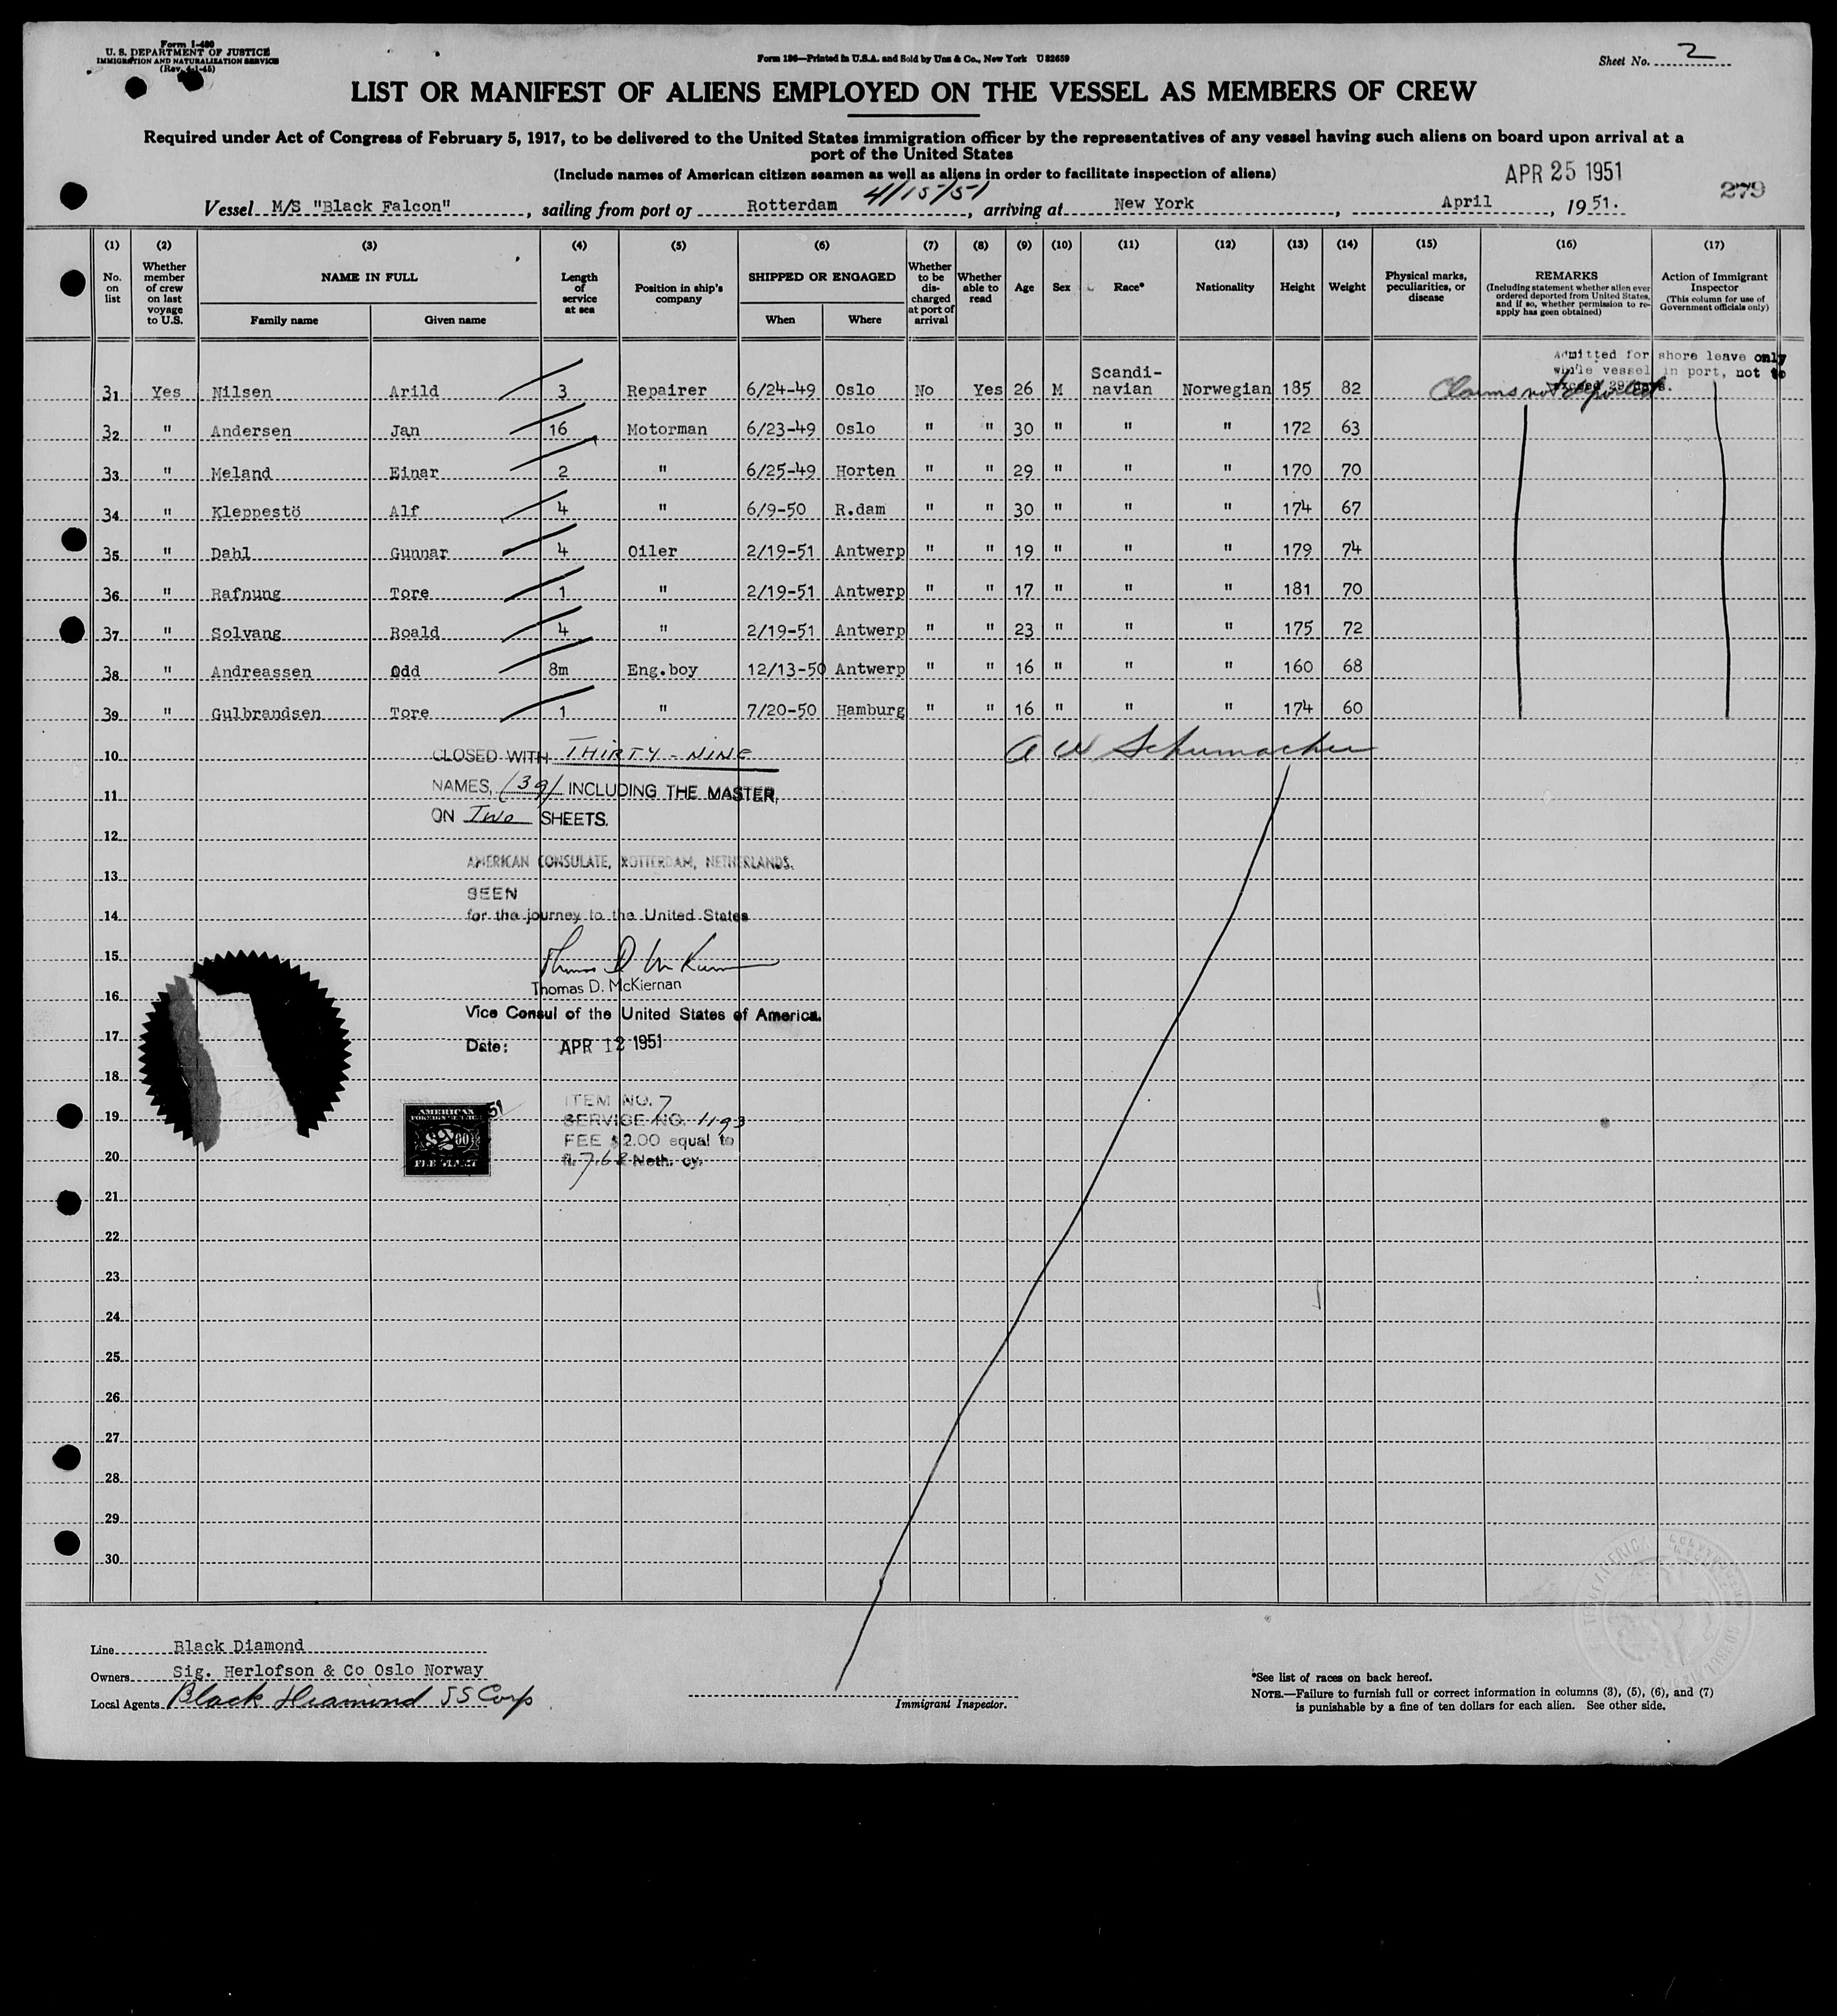 Form I-480
U. S. DEPARTMENT OF JUSTICE
IMMIGRATION AND NATURALIZATION SERVICE
(Rev. 4-1-45)
Form 186—Printed in U.S.A. and Sold by Unz & Co., New York U 82659
Sheet No. 2
LIST OR MANIFEST OF ALIENS EMPLOYED ON THE VESSEL AS MEMBERS OF CREW
Required under Act of Congress of February 5, 1917, to be delivered to the United States immigration officer by the representatives of any vessel having such aliens on board upon arrival at a
port of the United States
(Include names of American citizen seamen as well as aliens in order to facilitate inspection of aliens)
APR 25 1951
279
4/15/51
Vessel M/S "Black Falcon", sailing from port of Rotterdam, arriving at New York, April, 1951.
(1) (2) (3) (4) (5) (6) (7) (8) (9) (10) (11) (12) (13) (14) (15) (16) (17)
No. on list
Whether member of crew on last voyage to U.S.
NAME IN FULL
Family name
Given name
Length of service at sea
Position in ship's company
SHIPPED OR ENGAGED
When
Where
Whether to be discharged at port of arrival
Whether able to read
Age
Sex
Race*
Nationality
Height
Weight
Physical marks, peculiarities, or disease
REMARKS
(Including statement whether alien ever ordered deported from United States, and if so, whether permission to re-apply has geen obtained)
Action of Immigrant Inspector
(This column for use of Government officials only)
Admitted for shore leave only
while vessel in port, not to
exceed 29 days.
31 Yes Nilsen Arild 3 Repairer 6/24-49 Oslo No Yes 26 M Scandi-navian Norwegian 185 82 Claims not deported
32 " Andersen Jan 16 Motorman 6/23-49 Oslo " " 30 " " " 172 63
33 " Meland Einar 2 " 6/25-49 Horten " " 29 " " " 170 70
34 " Kleppestö Alf 4 " 6/9-50 R.dam " " 30 " " " 174 67
35 " Dahl Gunnar 4 Oiler 2/19-51 Antwerp " " 19 " " " 179 74
36 " Rafnung Tore 1 " 2/19-51 Antwerp " " 17 " " " 181 70
37 " Solvang Roald 4 " 2/19-51 Antwerp " " 23 " " " 175 72
38 " Andreassen Odd 8m Eng.boy 12/13-50 Antwerp " " 16 " " " 160 68
39 " Gulbrandsen Tore 1 " 7/20-50 Hamburg " " 16 " " " 174 60
10 CLOSED WITH THIRTY-NINE A W Schumacher
11 NAMES, (39) INCLUDING THE MASTER,
ON Two SHEETS.
12
13 AMERICAN CONSULATE, ROTTERDAM, NETHERLANDS.
SEEN
14 for the journey to the United States
15
Thomas D. McKiernan
16
Vice Consul of the United States of America.
17 Date: APR 12 1951
18
ITEM NO. 7
19 SERVICE NO. 1193
FEE $2.00 equal to
20 fl. 7.62 Neth. cy.
AMERICAN
FOREIGN SERVICE
$2.00
FEE STAMP
51
21
22
23
24
25
26
27
28
29
30
Line Black Diamond
Owners Sig. Herlofson & Co Oslo Norway
Local Agents Black Diamond SS Corp
Immigrant Inspector.
*See list of races on back hereof.
NOTE.—Failure to furnish full or correct information in columns (3), (5), (6), and (7)
is punishable by a fine of ten dollars for each alien. See other side.